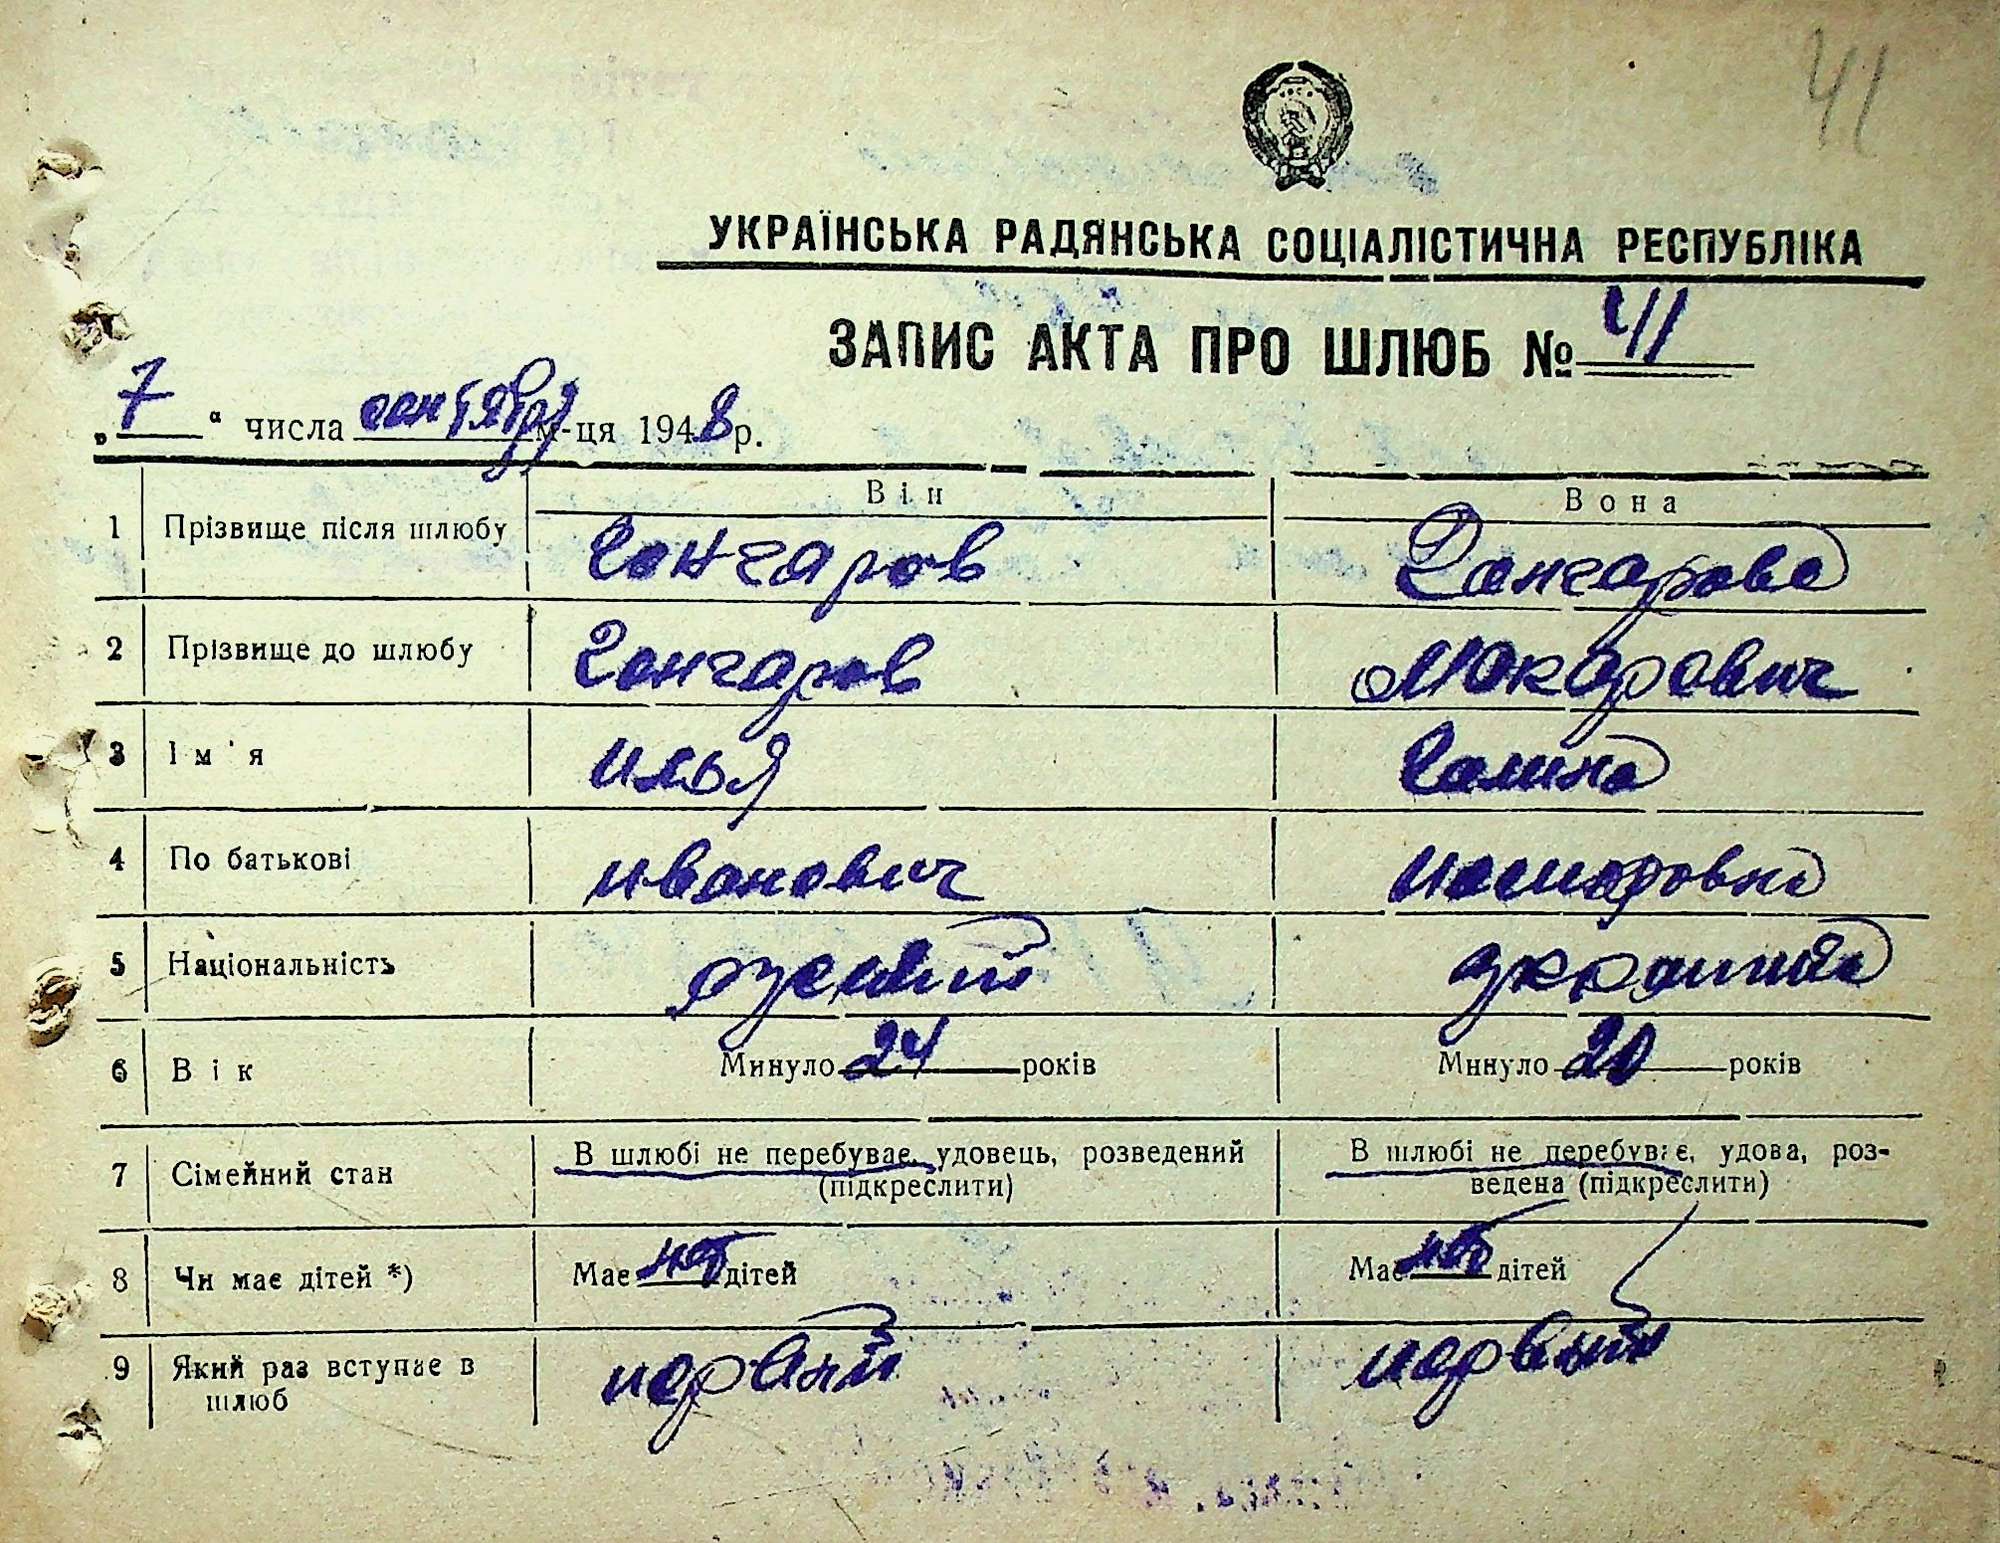 41
УКРАЇНСЬКА РАДЯНСЬКА СОЦІАЛІСТИЧНА РЕСПУБЛІКА
ЗАПИС АКТА ПРО ШЛЮБ № 41
„7“ числа сентября м-ця 1948 р.
Він Вона
1 Прізвище після шлюбу Гончаров Гончарова
2 Прізвище до шлюбу Гончаров Макарович
3 Ім'я Илья Галина
4 По батькові Иванович
5 Національність русский украинка
6 Вік Минуло 24 років Минуло 20 років
7 Сімейний стан В шлюбі не перебуває, удовець, розведений (підкреслити) В шлюбі не перебуває, удова, роз-
ведена (підкреслити)
8 Чи має дітей *) Має нет дітей Має нет дітей
9 Який раз вступає в шлюб первый первый